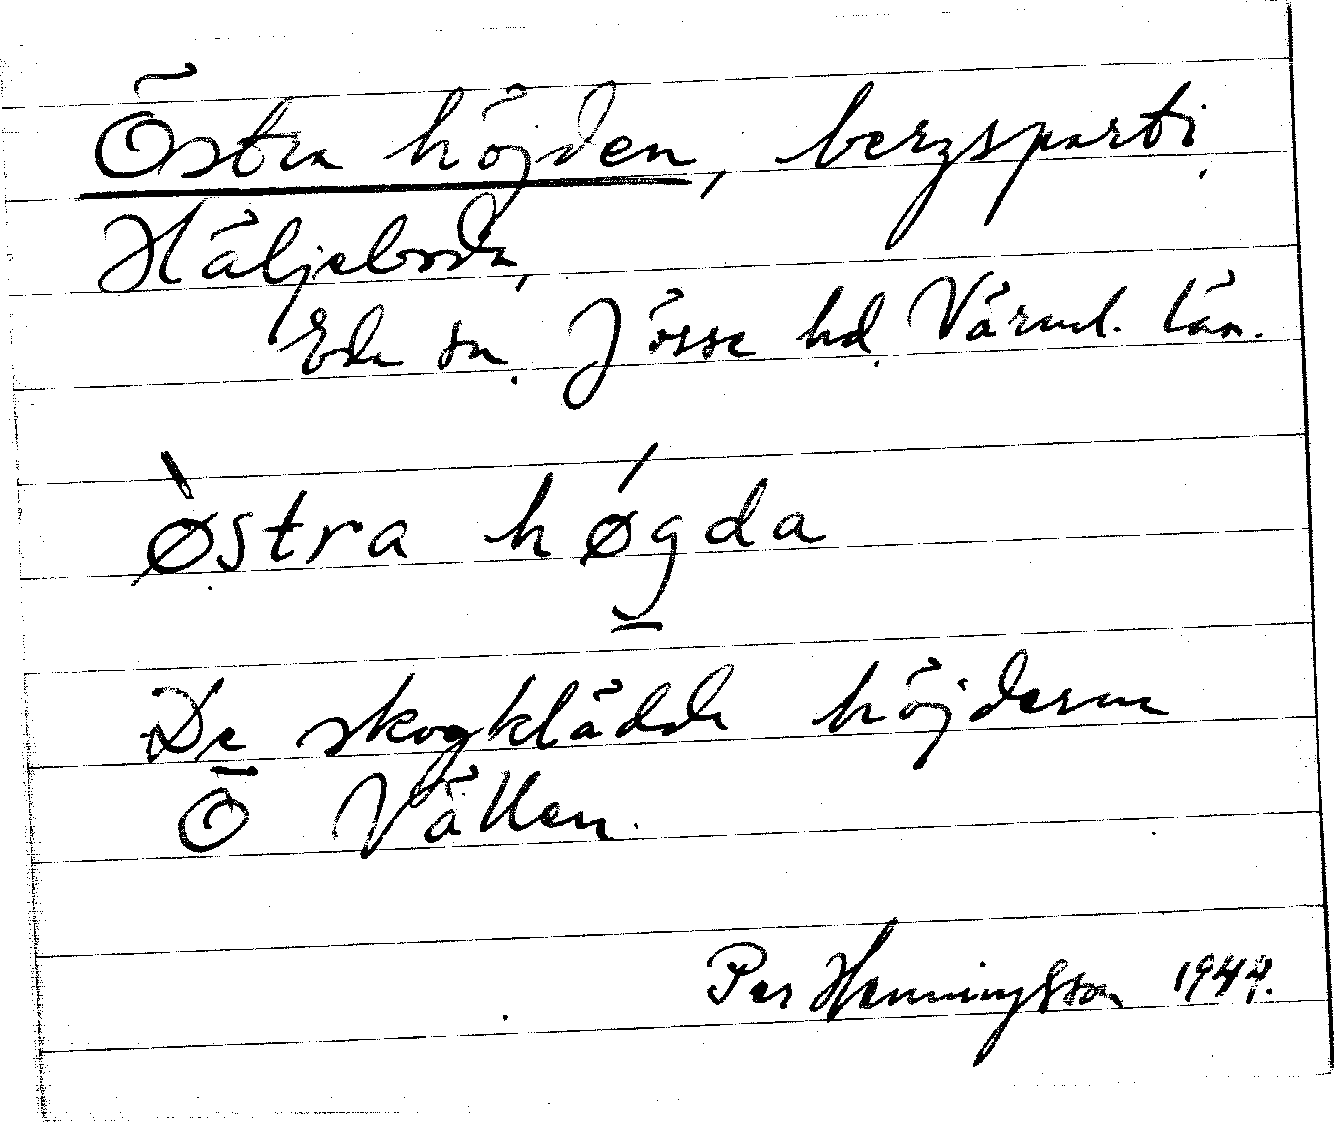 Östra höjden, bergsparti,
Häljeboda,
Eda sn. Jösse hd. Värml. län.
ø̀stra hǿgda
De skogklädda höjderna
Ö Vällen.
Per Henningsson 1944.